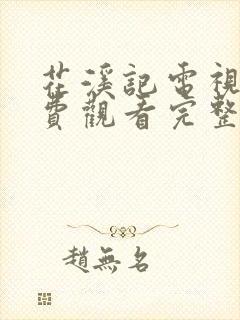 花溪記電視
費觀看完整
趙無名